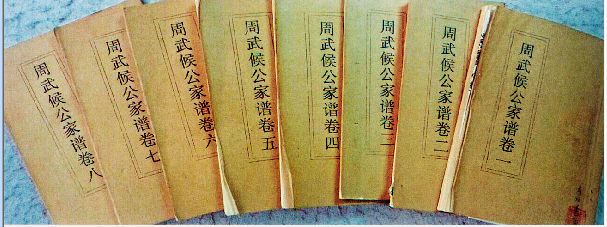 周武候公家谱卷一
周武候公家谱卷二
周武候公家谱卷三
周武候公家谱卷四
周武候公家谱卷五
周武候公家谱卷六
周武候公家谱卷七
周武候公家谱卷八